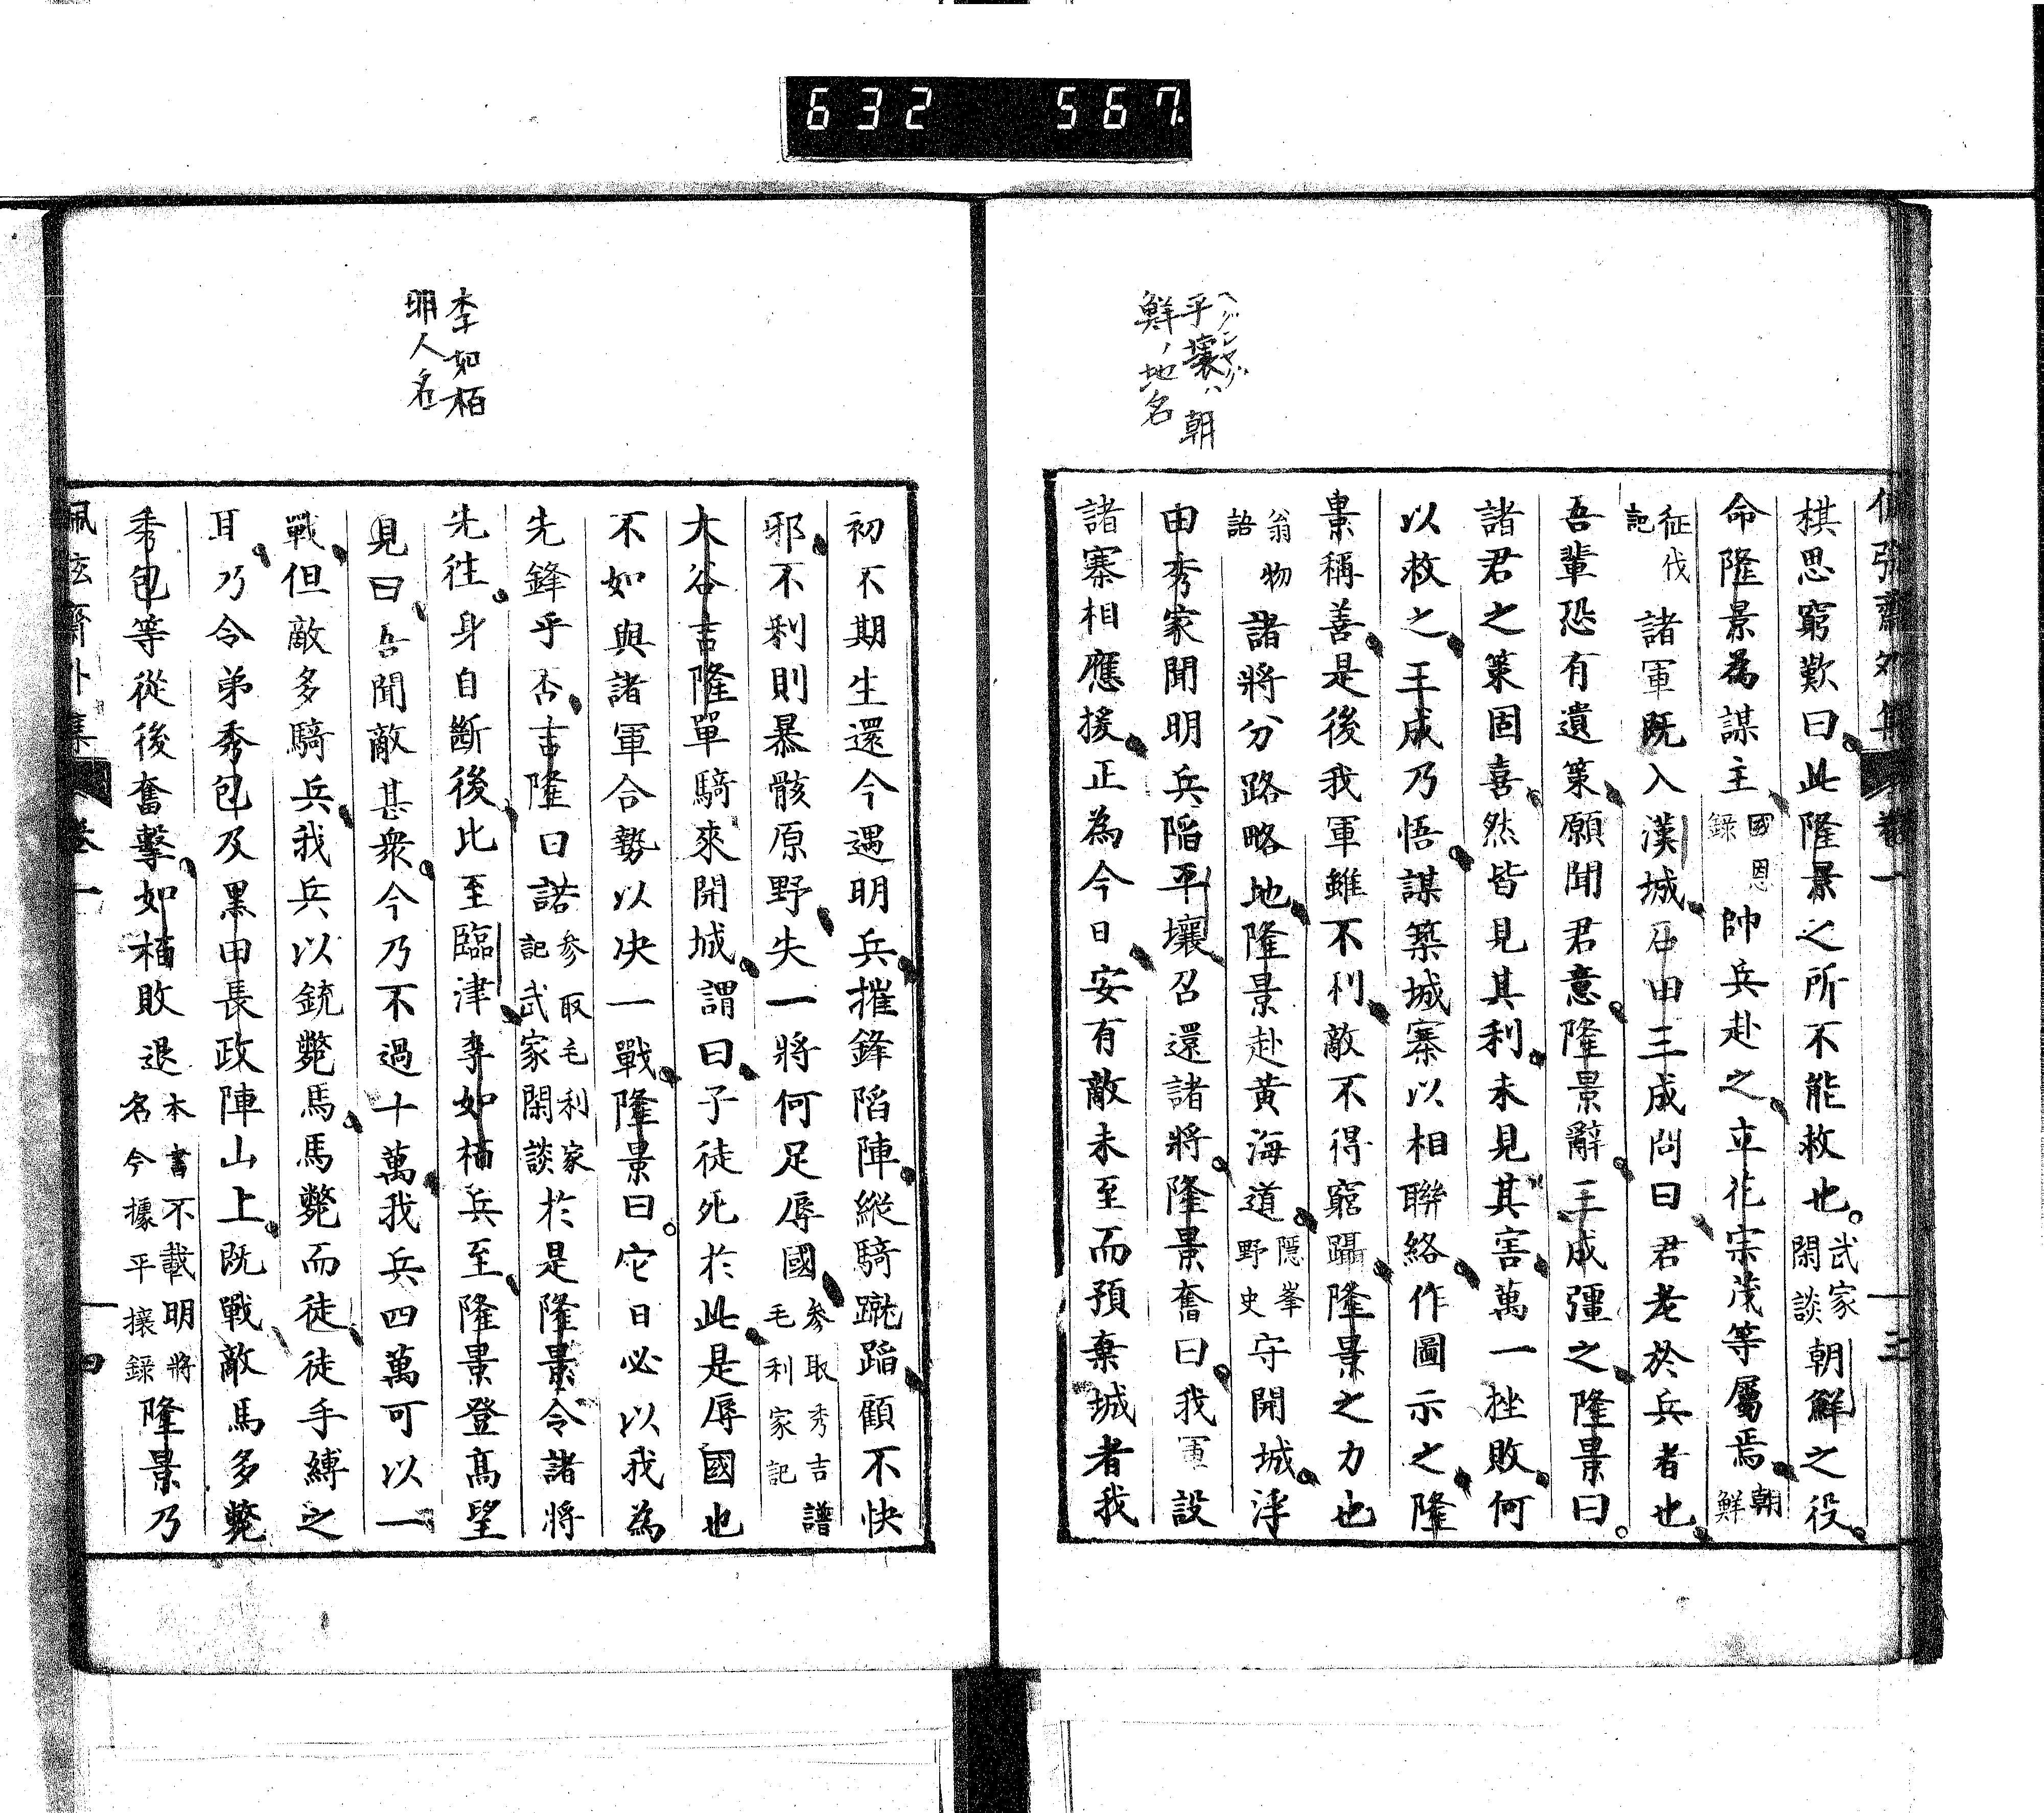 632 567
平壤ハ朝
ヘグシヤグ
鮮ノ地名
棋思窮歎曰此隆景之所不能救也武家閑談朝鮮之役
命隆景為謀主國恩錄帥兵赴之立花宗茂等屬焉朝鮮
征伐記諸軍既入漢城石田三成問曰君老於兵者也
吾輩恐有遺策願聞君意隆景辭三成彊之隆景曰
諸君之策固喜然皆見其利未見其害萬一挫敗何
以救之三成乃悟謀築城寨以相聯絡作圖示之隆
景稱善是後我軍雖不利敵不得窮躡隆景之力也
翁物語諸將分路略地隆景赴黃海道隱峯野史守開城浮
田秀家聞明兵陷平壤召還諸將隆景奮曰我軍設
諸寨相應援正為今日安有敵未至而預棄城者我
李如栢
明人名
初不期生還今遇明兵摧鋒陷陣縱騎蹴蹈顧不快
邪不利則暴骸原野失一將何足辱國參取秀吉譜毛利家記
大谷吉隆單騎來開城謂曰子徒死於此是辱國也
不如與諸軍合勢以决一戰隆景曰它日必以我為
先鋒乎否吉隆曰諾參取毛利家記武家閑談於是隆景令諸將
先徃身自斷後比至臨津李如栢兵至隆景登髙望
見曰吾聞敵甚衆今乃不過十萬我兵四萬可以一
戰但敵多騎兵我兵以銃斃馬馬斃而徒徒手縛之
耳乃令弟秀包及黑田長政陣山上既戰敵馬多斃
秀包等從後奮擊如栢敗退本書不載明將名今據平攘錄隆景乃
佩弦齋外集 卷一 四